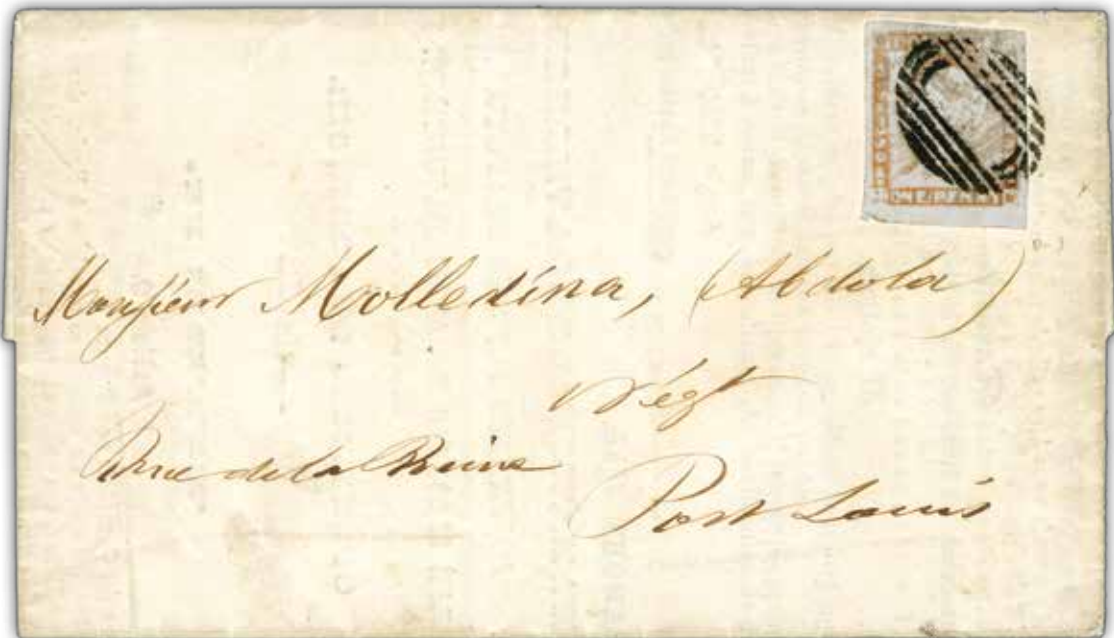 ONE PENNY
Monsieur Molledina, (Abdola)
Négt
Rue de la Reine
Port Louis